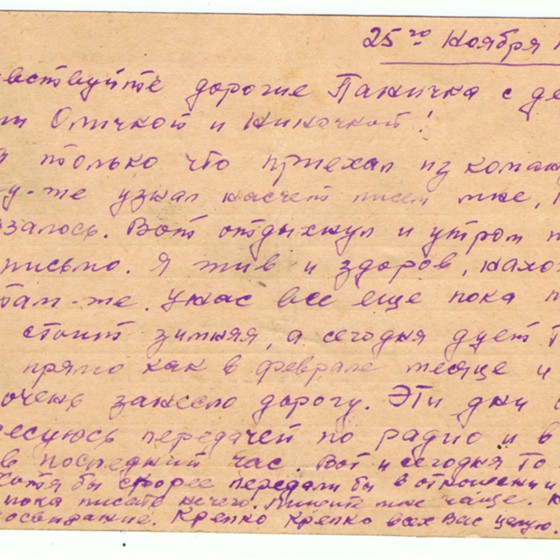 25го Ноября 1
вствуйте дорогие Паничка с де
ти Оличкой и Ниночкой!
я только что приехал из коман
у-же узнал насчет писем мне,
залось. Вот отдыхнул и утром п
письмо. Я жив и здоров, нахо
там-же. У нас все еще пока п
стоит зимняя, а сегодня дует
прямо как в феврале месяце и
очень занесло дорогу. Эти дни
ресуюсь передачей по радио и в
в последний час. Вот и сегодня то
Хотя бы скорее передали бы в отношении
пока писать нечего. Пишите мне чаще.
досвидание. Крепко Крепко всех Вас целую.